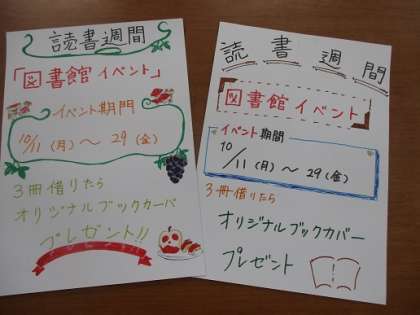 読書週間
「図書館イベント」
イベント期間
10/11(月)～29(金)
3冊借りたら
オリジナルブックカバー
プレゼント!!
読書週間
図書館イベント
イベント期間
10/11(月)～29(金)
3冊借りたら
オリジナルブックカバー
プレゼント